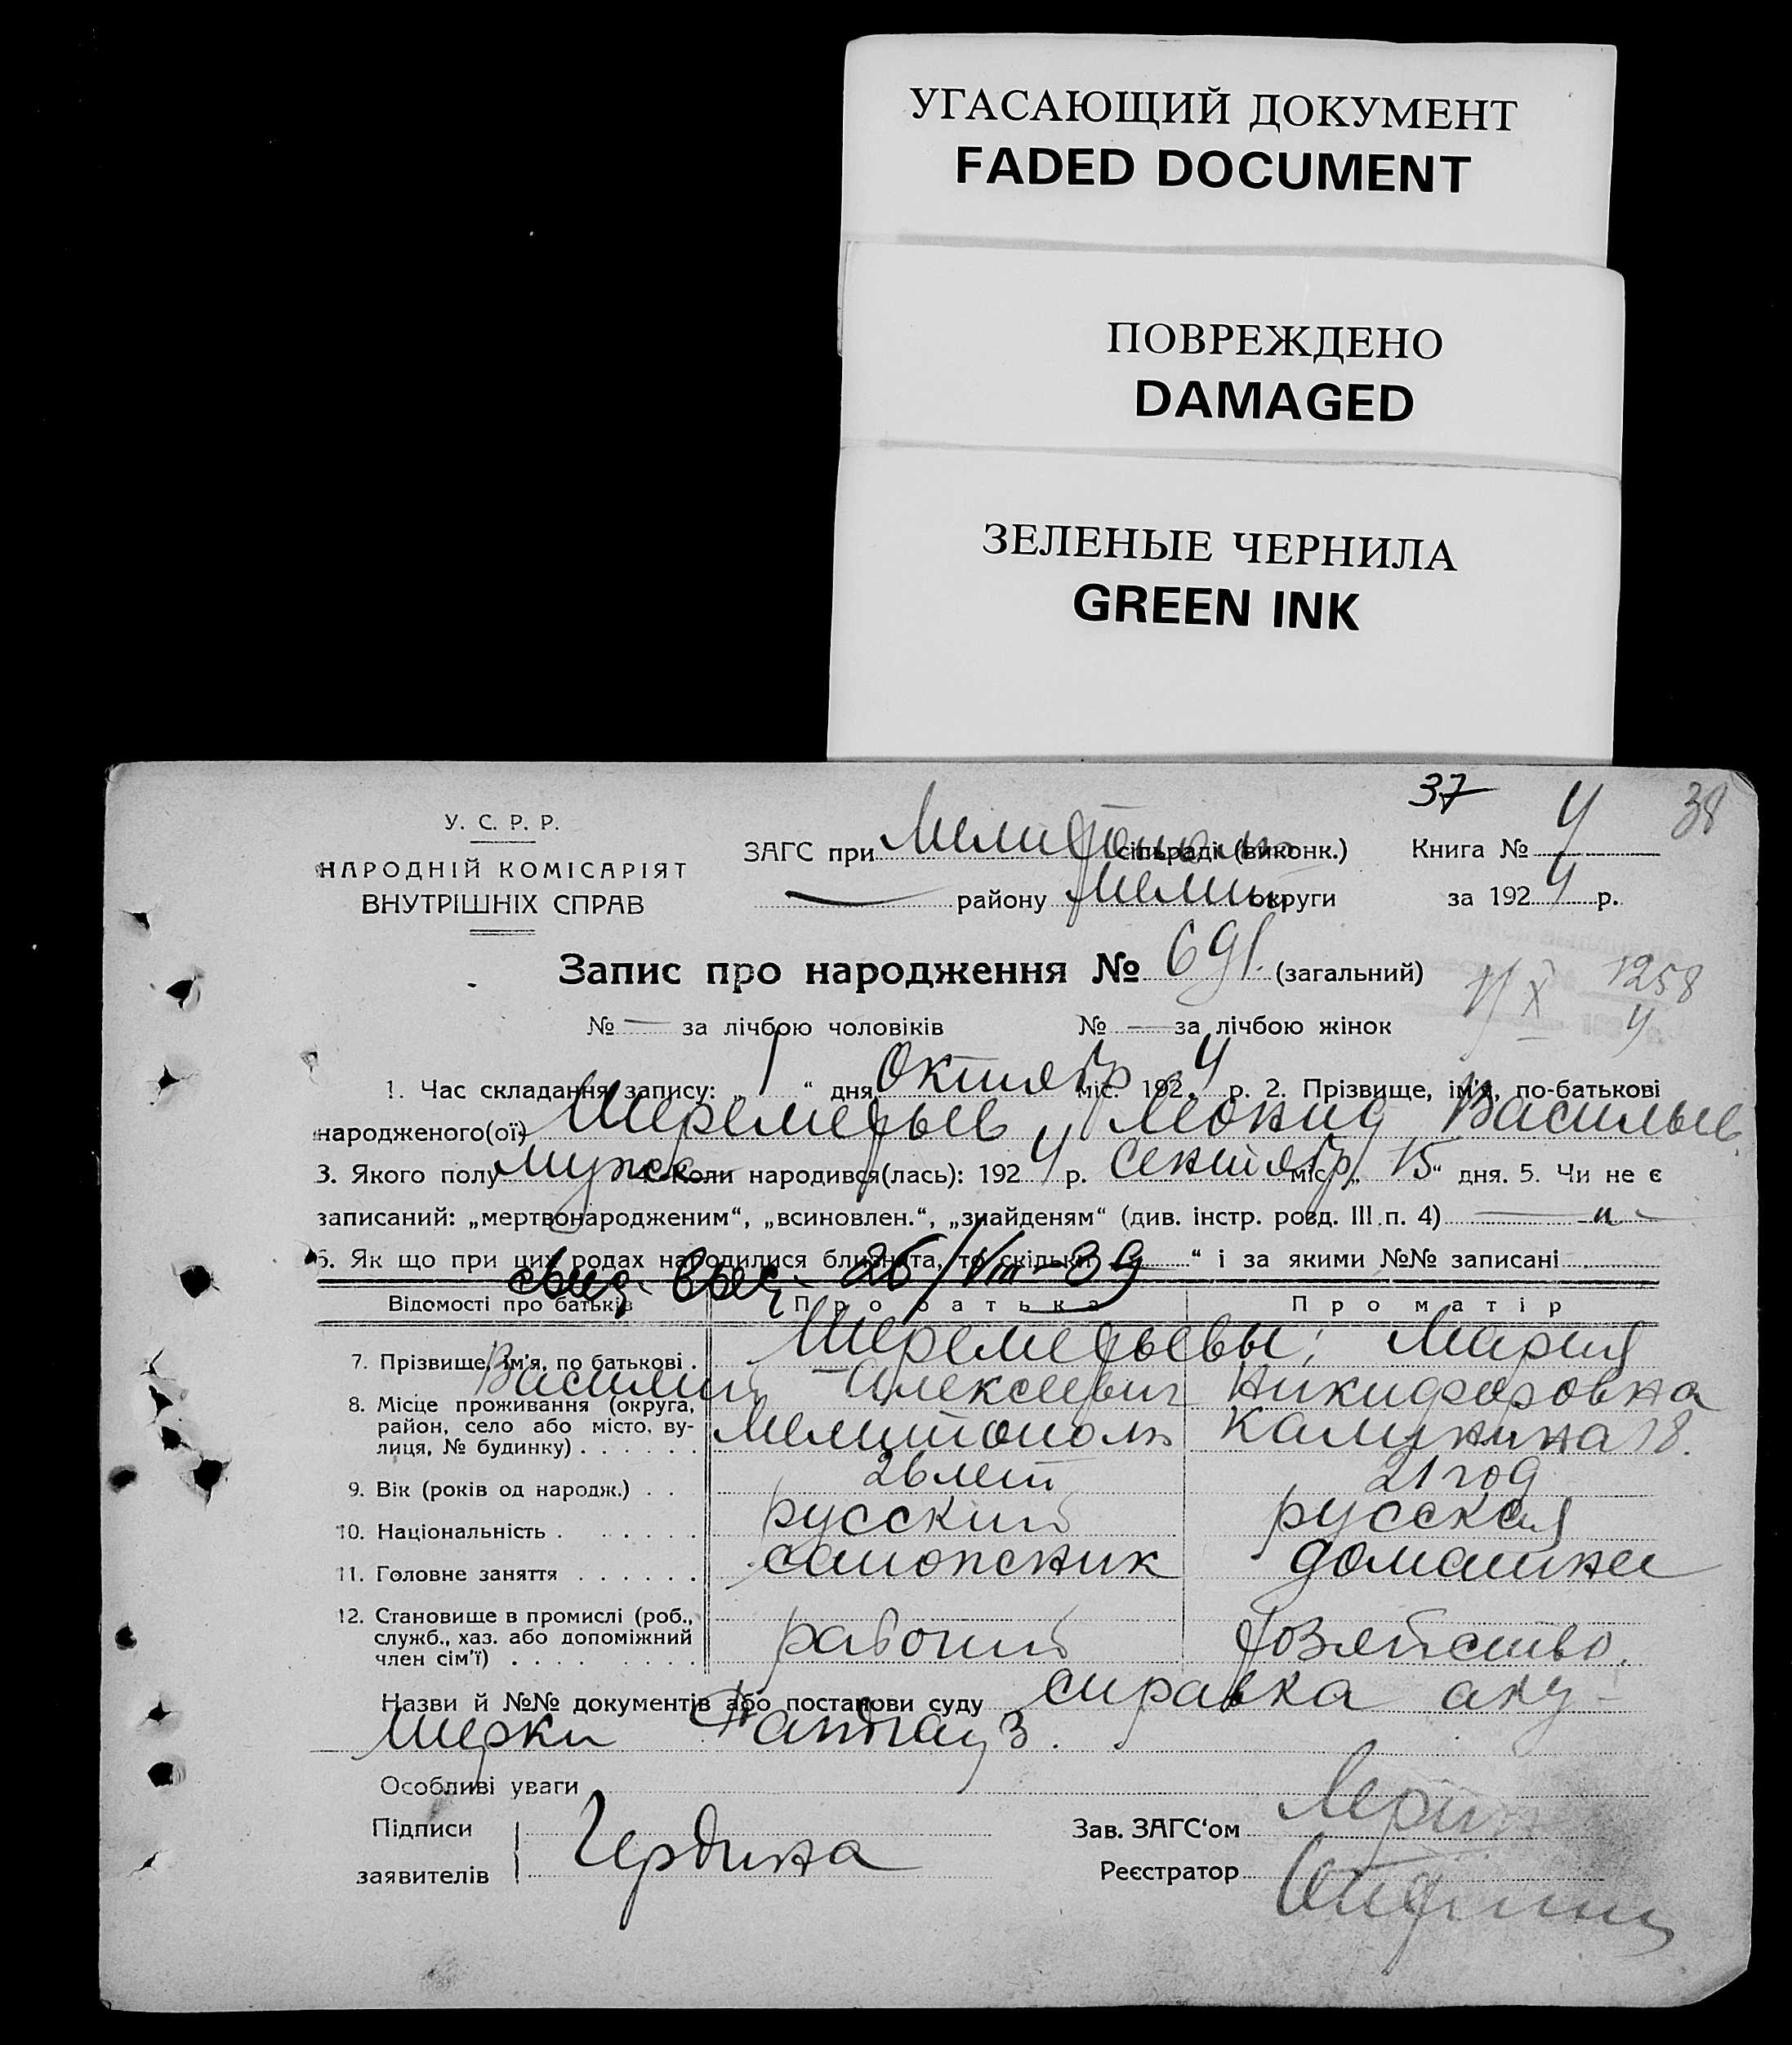 УГАСАЮЩИЙ ДОКУМЕНТ
FADED DOCUMENT
ПОВРЕЖДЕНО
DAMAGED
ЗЕЛЕНЫЕ ЧЕРНИЛА
GREEN INK
37 38
У. С. Р. Р.
НАРОДНІЙ КОМІСАРІЯТ
ВНУТРІШНІХ СПРАВ
ЗАГС при Мелитопольс сільраді (виконк.) Книга № 4
— району Мелит округи за 1924 р.
Запис про народження № 691. (загальний)
1/X 1258
4
№ — за лічбою чоловіків № — за лічбою жінок
1. Час складання запису: „ 1 “ дня Октябр міс. 1924 р. 2. Прізвище, ім'я, по-батькові
народженого(ої) Шереметьев Леонид Васильев
3. Якого полу мужс 4. Коли народився(лась): 1924 р. Сентябр міс. „ 15 “ дня. 5. Чи не є
записаний: „мертвонародженим“, „всиновлен.“, „знайденям“ (див. інстр. розд. III п. 4) — „ —
6. Як що при цих родах народилися близнята, то скільки “ і за якими №№ записані
свид. выд. 26/VIII-39
Відомості про батьків Про батька Про матір
7. Прізвище, ім'я, по батькові . Шереметьевы; Мария
Василий Алексеевич Никифоровна
8. Місце проживання (округа,
район, село або місто, ву-
лиця, № будинку) . . . . . . Мелитополь Калинина 18.
9. Вік (років од народж.) . . 26 лет 21 год
10. Національність . . . . . . русский русская
11. Головне заняття . . . . . . сапожник домашнее
12. Становище в промислі (роб.,
служб., хаз. або допоміжний
член сім'ї) . . . . . . . . рабочий хозяйство.
Назви й №№ документів або постанови суду справка аку-
шерки
Особливі уваги
Підписи
заявителів
Зав. ЗАГС‘ом
Реєстратор